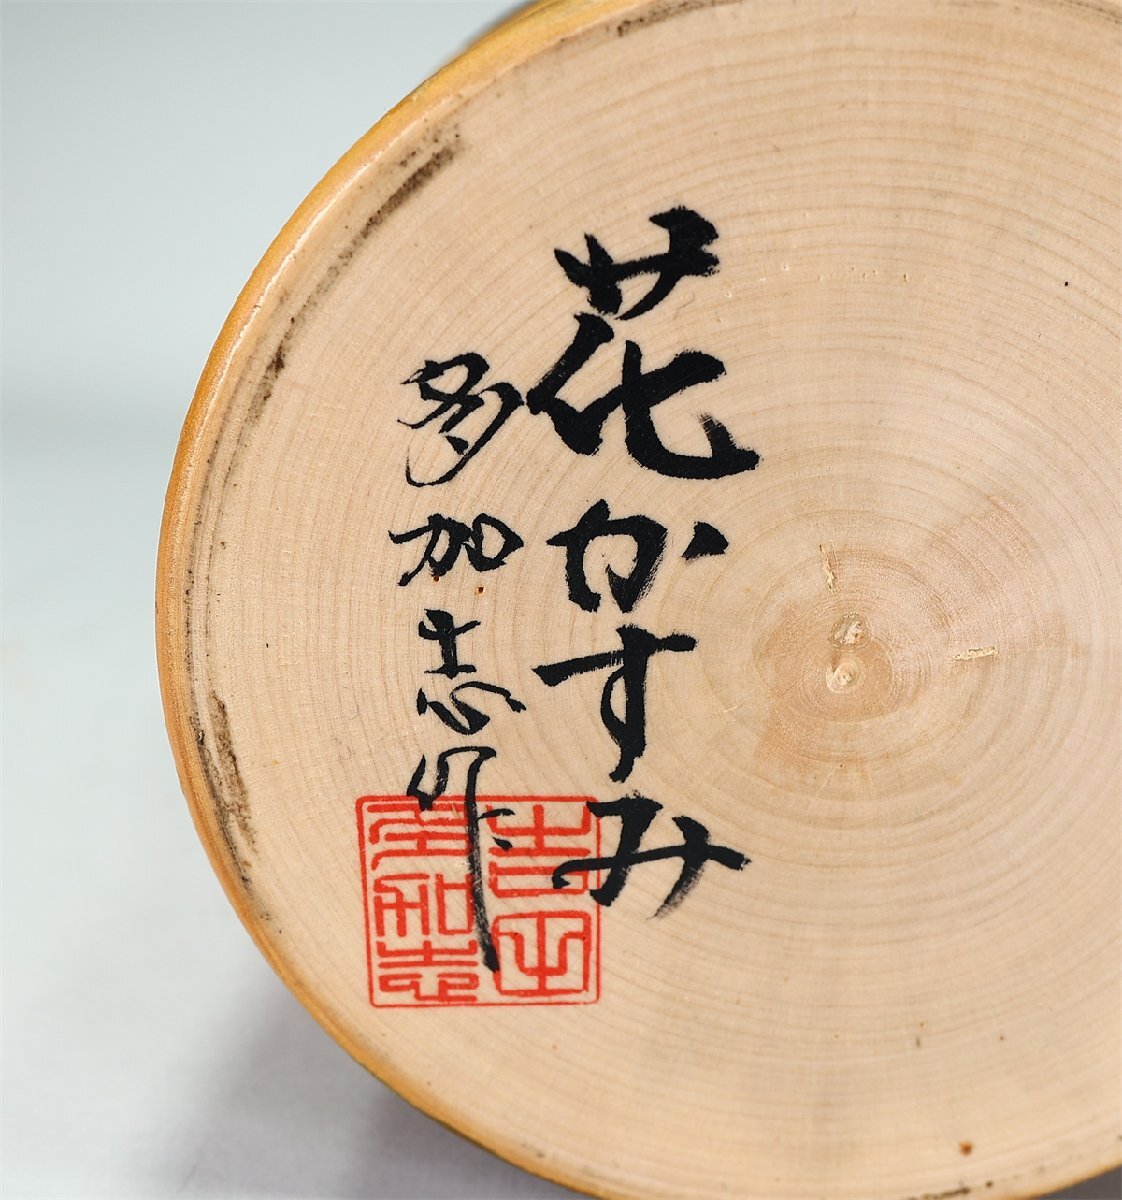 花かすみ
多加志作